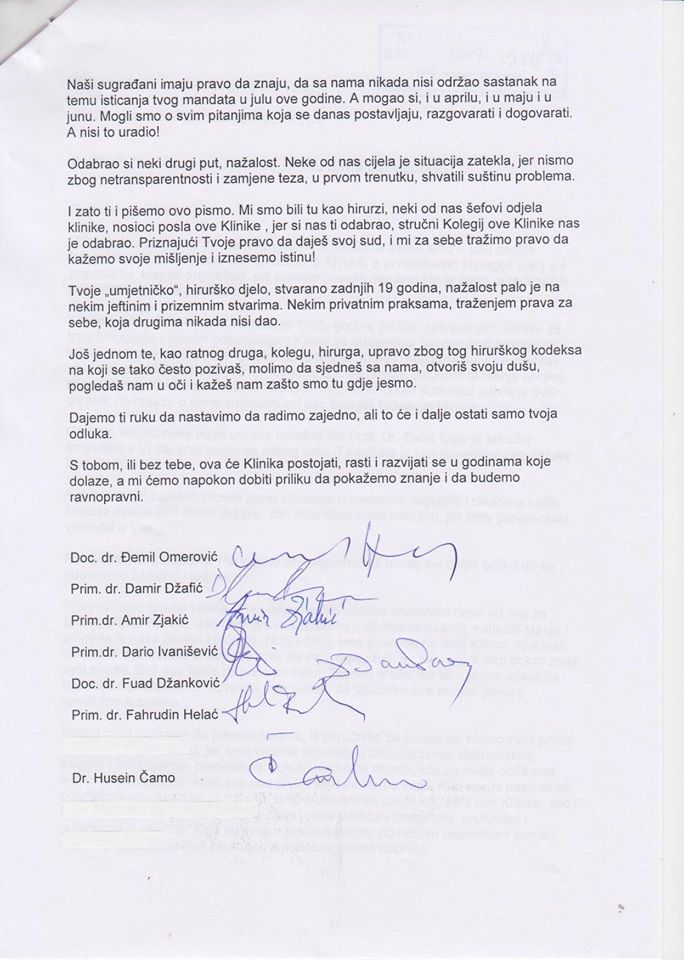 Naši sugrađani imaju pravo da znaju, da sa nama nikada nisi održao sastanak na
temu isticanja tvog mandata u julu ove godine. A mogao si, i u aprilu, i u maju i u
junu. Mogli smo o svim pitanjima koja se danas postavljaju, razgovarati i dogovarati.
A nisi to uradio!
Odabrao si neki drugi put, nažalost. Neke od nas cijela je situacija zatekla, jer nismo
zbog netransparentnosti i zamjene teza, u prvom trenutku, shvatili suštinu problema.
I zato ti i pišemo ovo pismo. Mi smo bili tu kao hirurzi, neki od nas šefovi odjela
klinike, nosioci posla ove Klinike , jer si nas ti odabrao, stručni Kolegij ove Klinike nas
je odabrao. Priznajući Tvoje pravo da daješ svoj sud, i mi za sebe tražimo pravo da
kažemo svoje mišljenje i iznesemo istinu!
Tvoje „umjetničko“, hirurško djelo, stvarano zadnjih 19 godina, nažalost palo je na
nekim jeftinim i prizemnim stvarima. Nekim privatnim praksama, traženjem prava za
sebe, koja drugima nikada nisi dao.
Još jednom te, kao ratnog druga, kolegu, hirurga, upravo zbog tog hirurškog kodeksa
na koji se tako često pozivaš, molimo da sjedneš sa nama, otvoriš svoju dušu,
pogledaš nam u oči i kažeš nam zašto smo tu gdje jesmo.
Dajemo ti ruku da nastavimo da radimo zajedno, ali to će i dalje ostati samo tvoja
odluka.
S tobom, ili bez tebe, ova će Klinika postojati, rasti i razvijati se u godinama koje
dolaze, a mi ćemo napokon dobiti priliku da pokažemo znanje i da budemo
ravnopravni.
Doc. dr. Đemil Omerović
Prim. dr. Damir Džafić
Prim.dr. Amir Zjakić Amir Zjakić
Prim.dr. Dario Ivanišević
Doc. dr. Fuad Džanković
Prim. dr. Fahrudin Helać
Dr. Husein Čamo